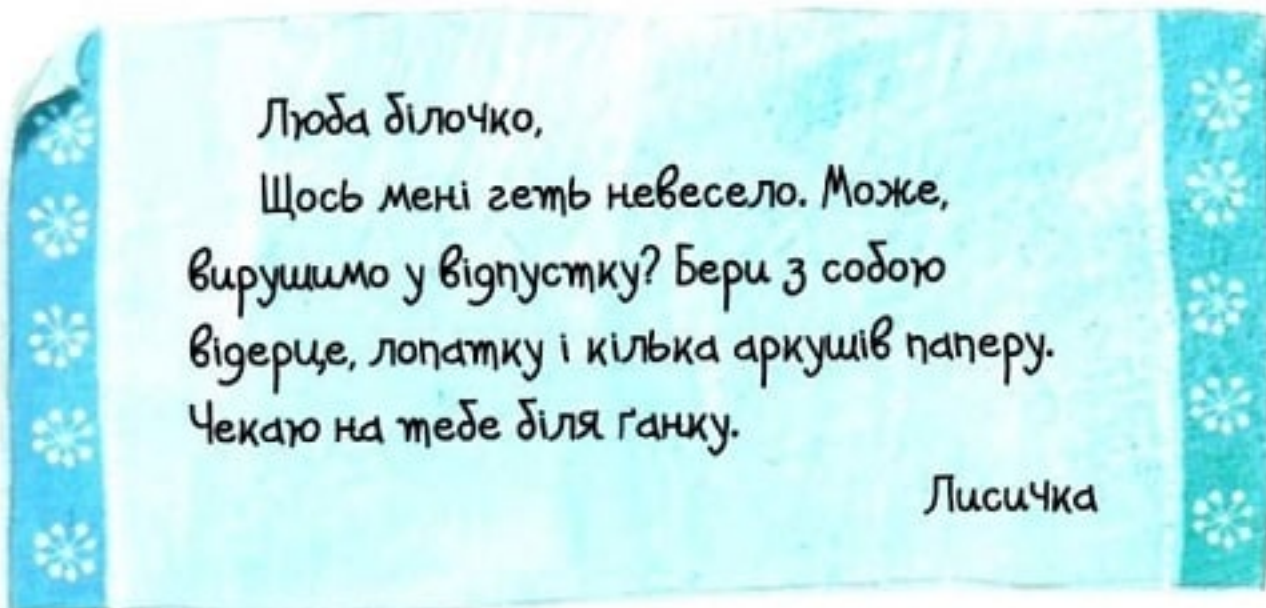 Люба білочко,
Щось мені геть невесело. Може,
вирушимо у відпустку? Бери з собою
відерце, лопатку і кілька аркушів паперу.
Чекаю на тебе біля ґанку.
Лисичка